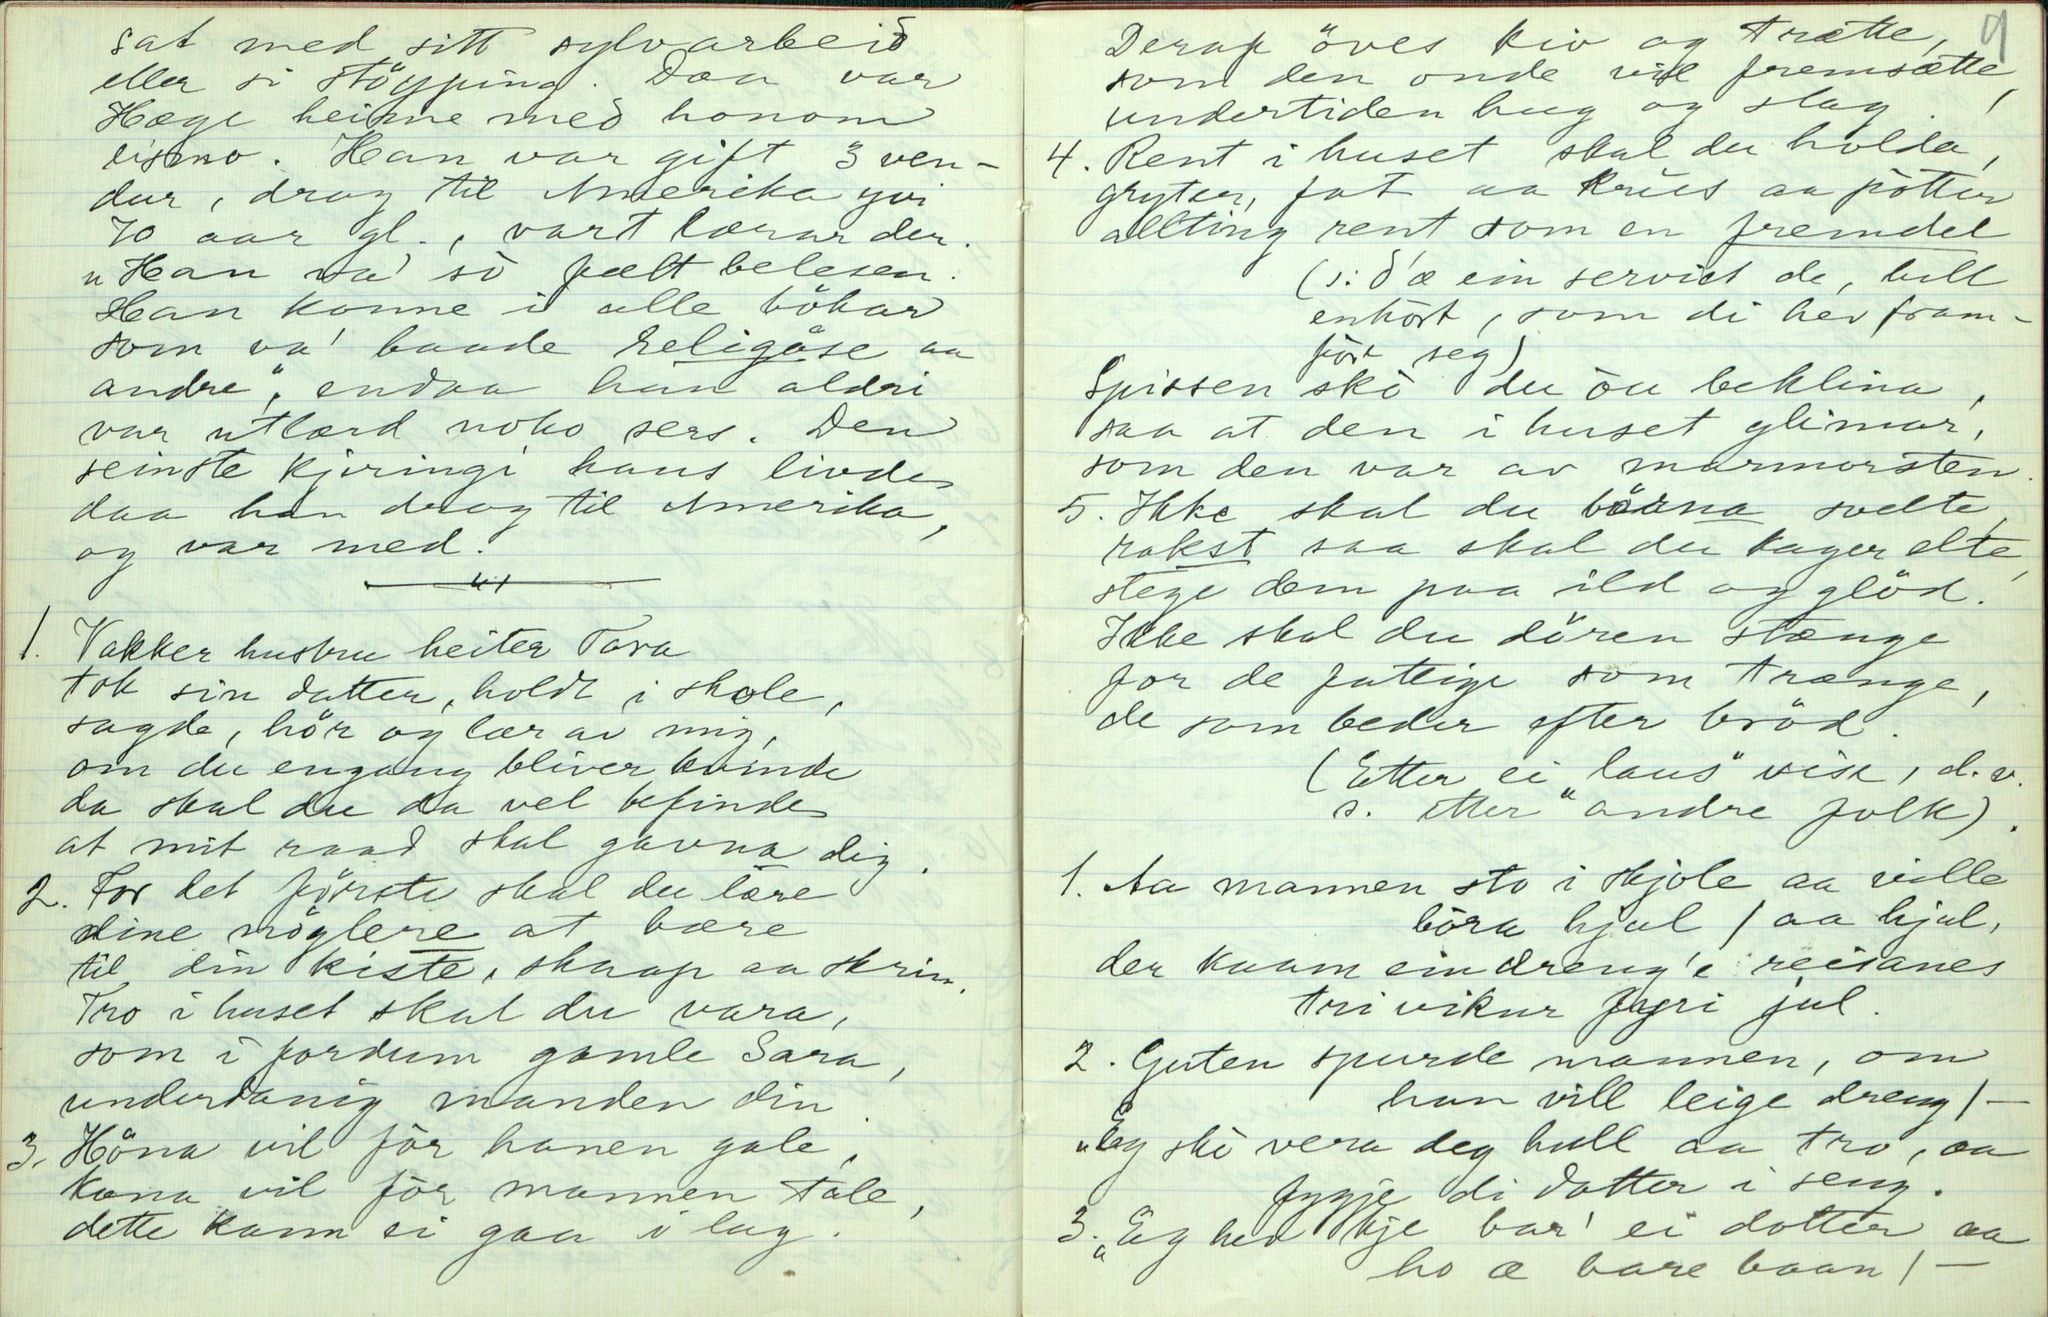 sat med sitt sylvarbeid
eller si stöyping. Daa var
Hæge heime med honom
eismo. Han var gift 3 ven-
dur, drog til Amerika yvi
70 aar gl., vart lærar der.
"Han va' sò fælt belesen.
Han konne i alle bökar
som va' baade religöse aa
andre", endaa han aldri
var utlærd noko sers. Den
seinste kjeringi hans livde
daa han drog til Amerika,
og var med.
1. Vakker hustru heiter Tara
tok sin datter, holdt i skole,
sagde, hör og lær av mig,
om du engang bliver kvinde
da skal du da vel befinde
at mit raad skal gavna dig.
2. For det förste skal du lære
dine nöglere at bære
til din kiste, skaap aa skrin.
Tro i huset skal du vara,
som i fordum gamle Sara,
underdanig manden din.
3. Höna vil för hanen gale,
kona vil för mannen tale,
dette kann ei gaa i lag.
9
Deraf öves kiv og trætte,
som den onde vil fremsætte,
undertiden hug og slag!
4. Rent i huset skal du holda,
gryter, fat aa krus aa pötter
allting rent som en fremdel
(s: d'æ ein serviet de, hell
enkört, som di hev fram-
före seg)
Spissen skò du òu beklina,
saa at den i huset glimar,
som den var av marmorsten.
5. Ikke skal du börna svelte,
rakst saa skal du kager elte,
stege dem paa ild og glöd.
Ikke skal du dören stænge
for de fattige som trænge,
de som beder efter bröd.
(Etter ei "laus" vise, d.v.
s. etter "andre folk").
1. Aa mannen sto i skjole aa ville
böra hjul / aa hjul,
der kaam ein dreng'e reisanes
tri vikur fyri jul.
2. Guten spurde mannen, om
han vill leige dreng / —
"Eg skò vera deg hull aa tro, aa
fygje di datter i seng.
3. "Eg hev kje bar' ei dotter aa
ho æ bare baan / —